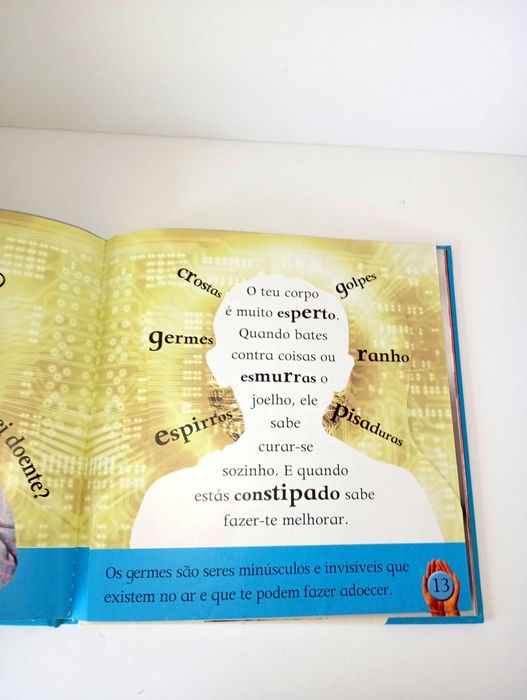 ei doente?
crostas
golpes
germes
ranho
espirros
pisaduras
O teu corpo
é muito esperto.
Quando bates
contra coisas ou
esmurras o
joelho, ele
sabe
curar-se
sozinho. E quando
estás constipado sabe
fazer-te melhorar.
Os germes são seres minúsculos e invisíveis que
existem no ar e que te podem fazer adoecer.
13